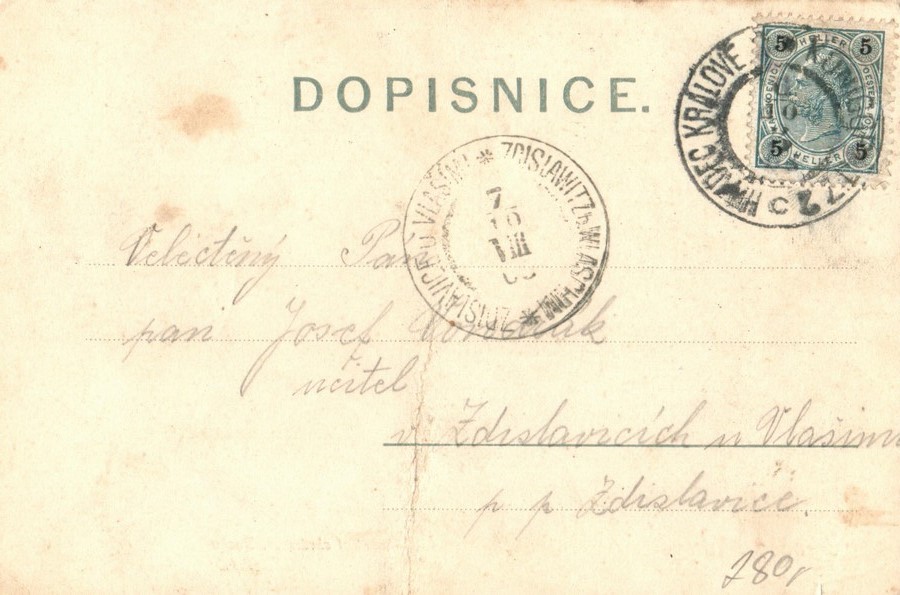 DOPISNICE.
5 HELLER 5
5 HELLER 5
HRADEC KRÁLOVÉ
ZDISLAWITZ b. WLASCHIM * ZDISLAVICE U VLAŠIMI *
7
10
VIII
Velectěný Pan
pan Josef
učitel
v Zdislavicích u Vlašimi
p p Zdislavice.
280